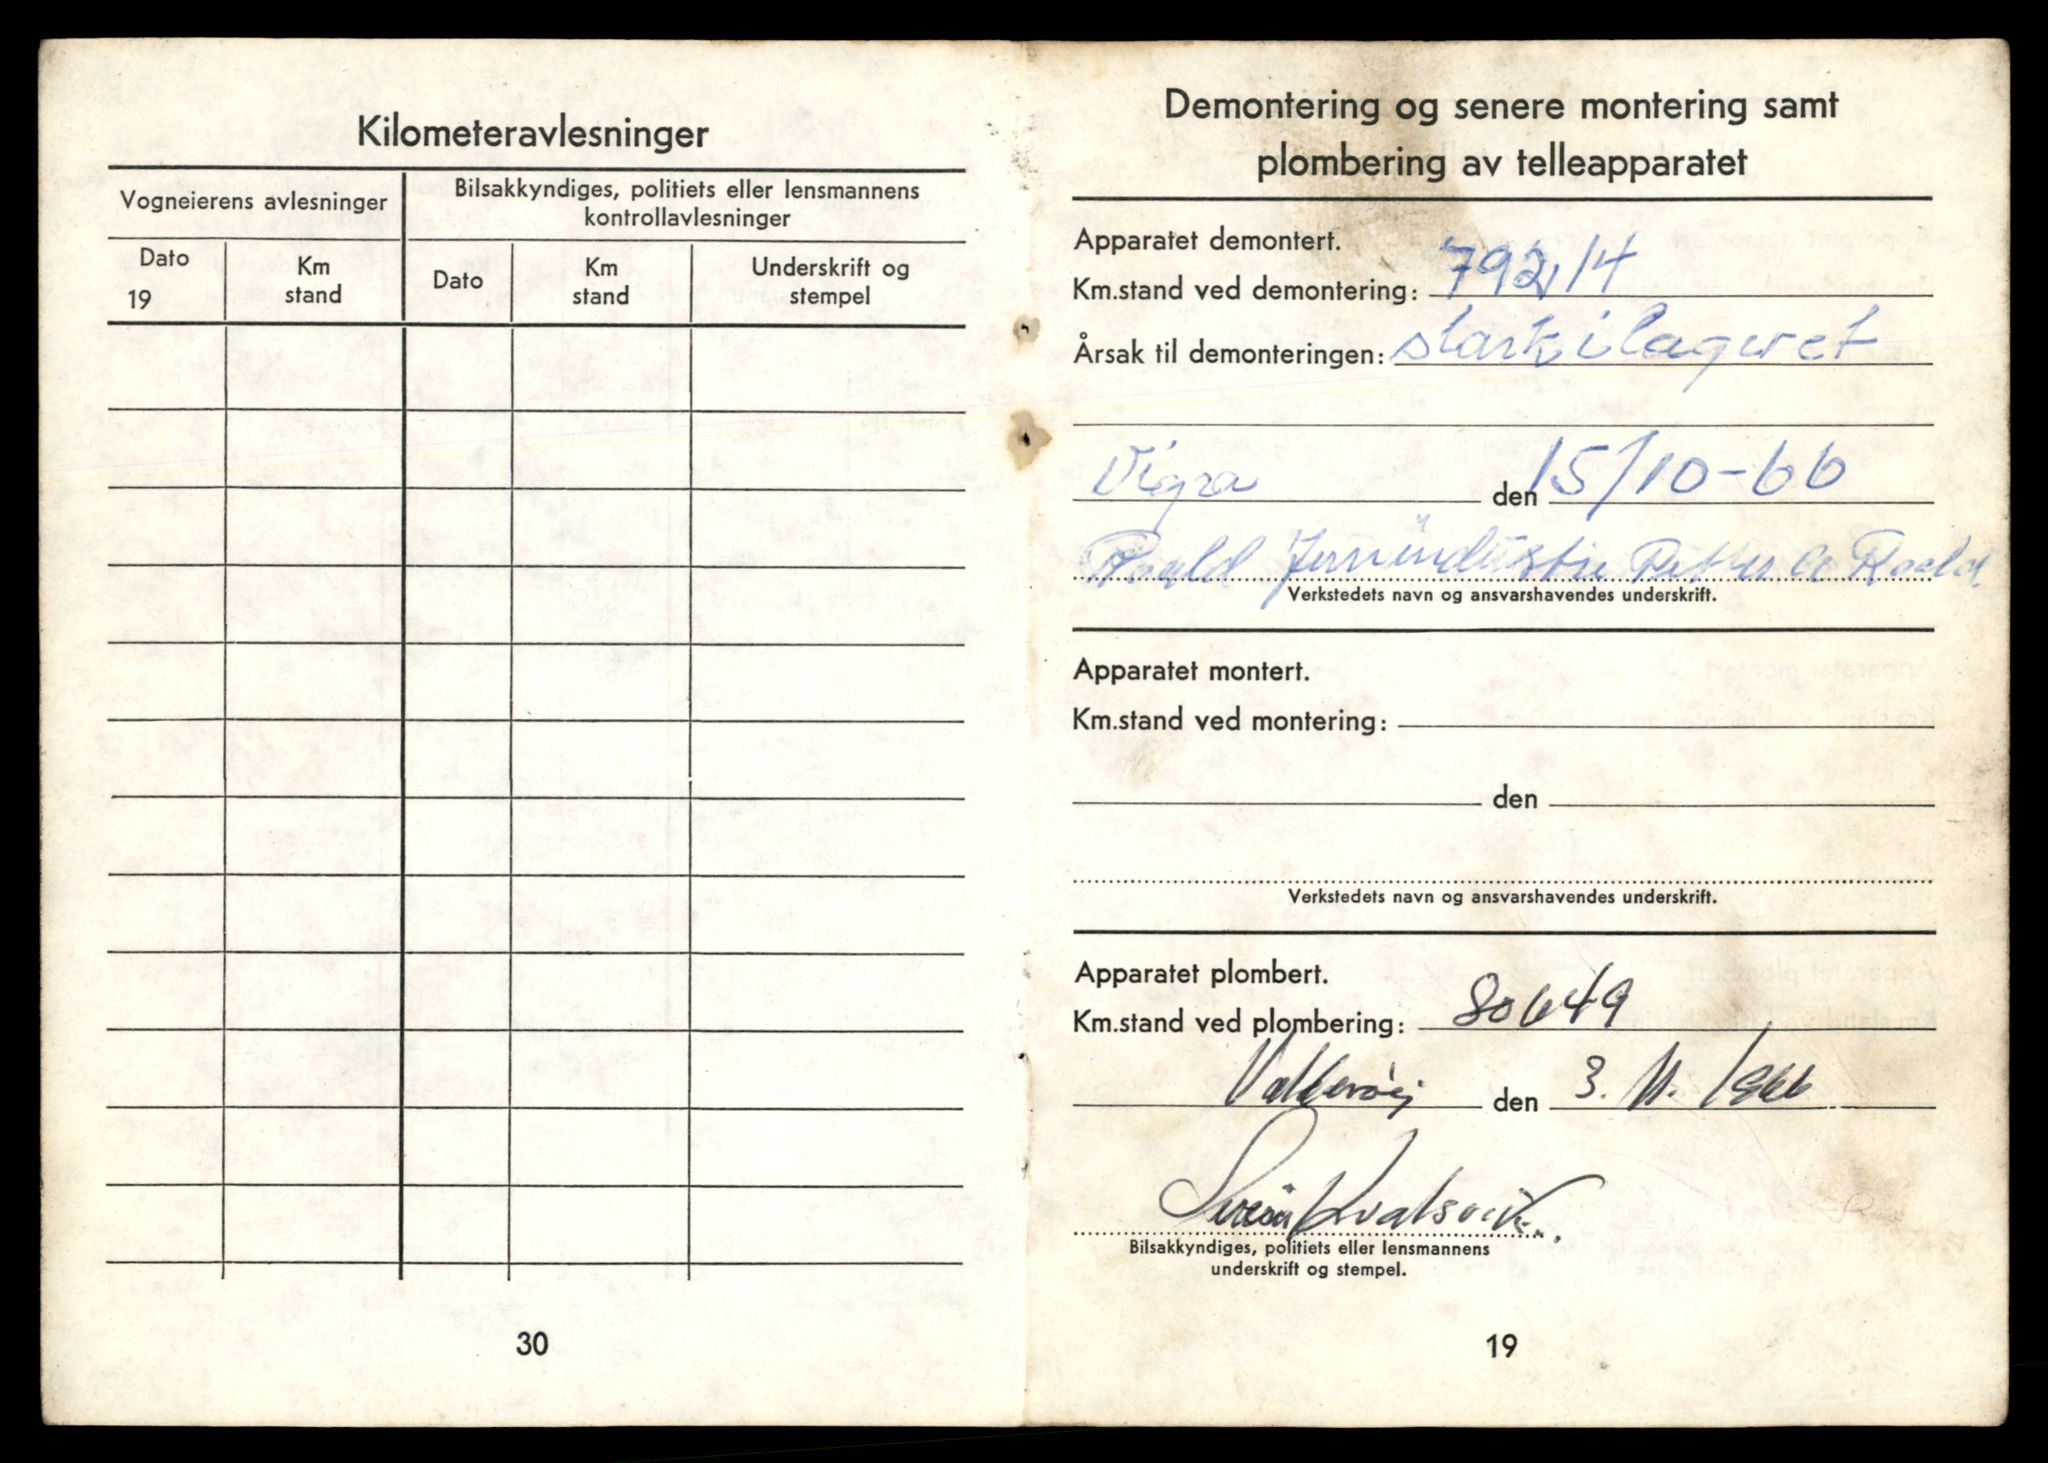 Kilometeravlesninger
Vogneierens avlesninger
Bilsakkyndiges, politiets eller lensmannens
kontrollavlesninger
Dato
19
Km
stand
Dato
Km
stand
Underskrift og
stempel
30
Demontering og senere montering samt
plombering av telleapparatet
Apparatet demontert.
Km.stand ved demontering: 79214
Årsak til demonteringen: slark i lageret
Vigra den 15/10-66
Roald Jernindustri Petter O Roald.
Verkstedets navn og ansvarshavendes underskrift.
Apparatet montert.
Km.stand ved montering:
den
Verkstedets navn og ansvarshavendes underskrift.
Apparatet plombert.
Km.stand ved plombering: 80649
Valderøy den 3. 11. 1966
Kvalsvik.
Bilsakkyndiges, politiets eller lensmannens
underskrift og stempel.
19